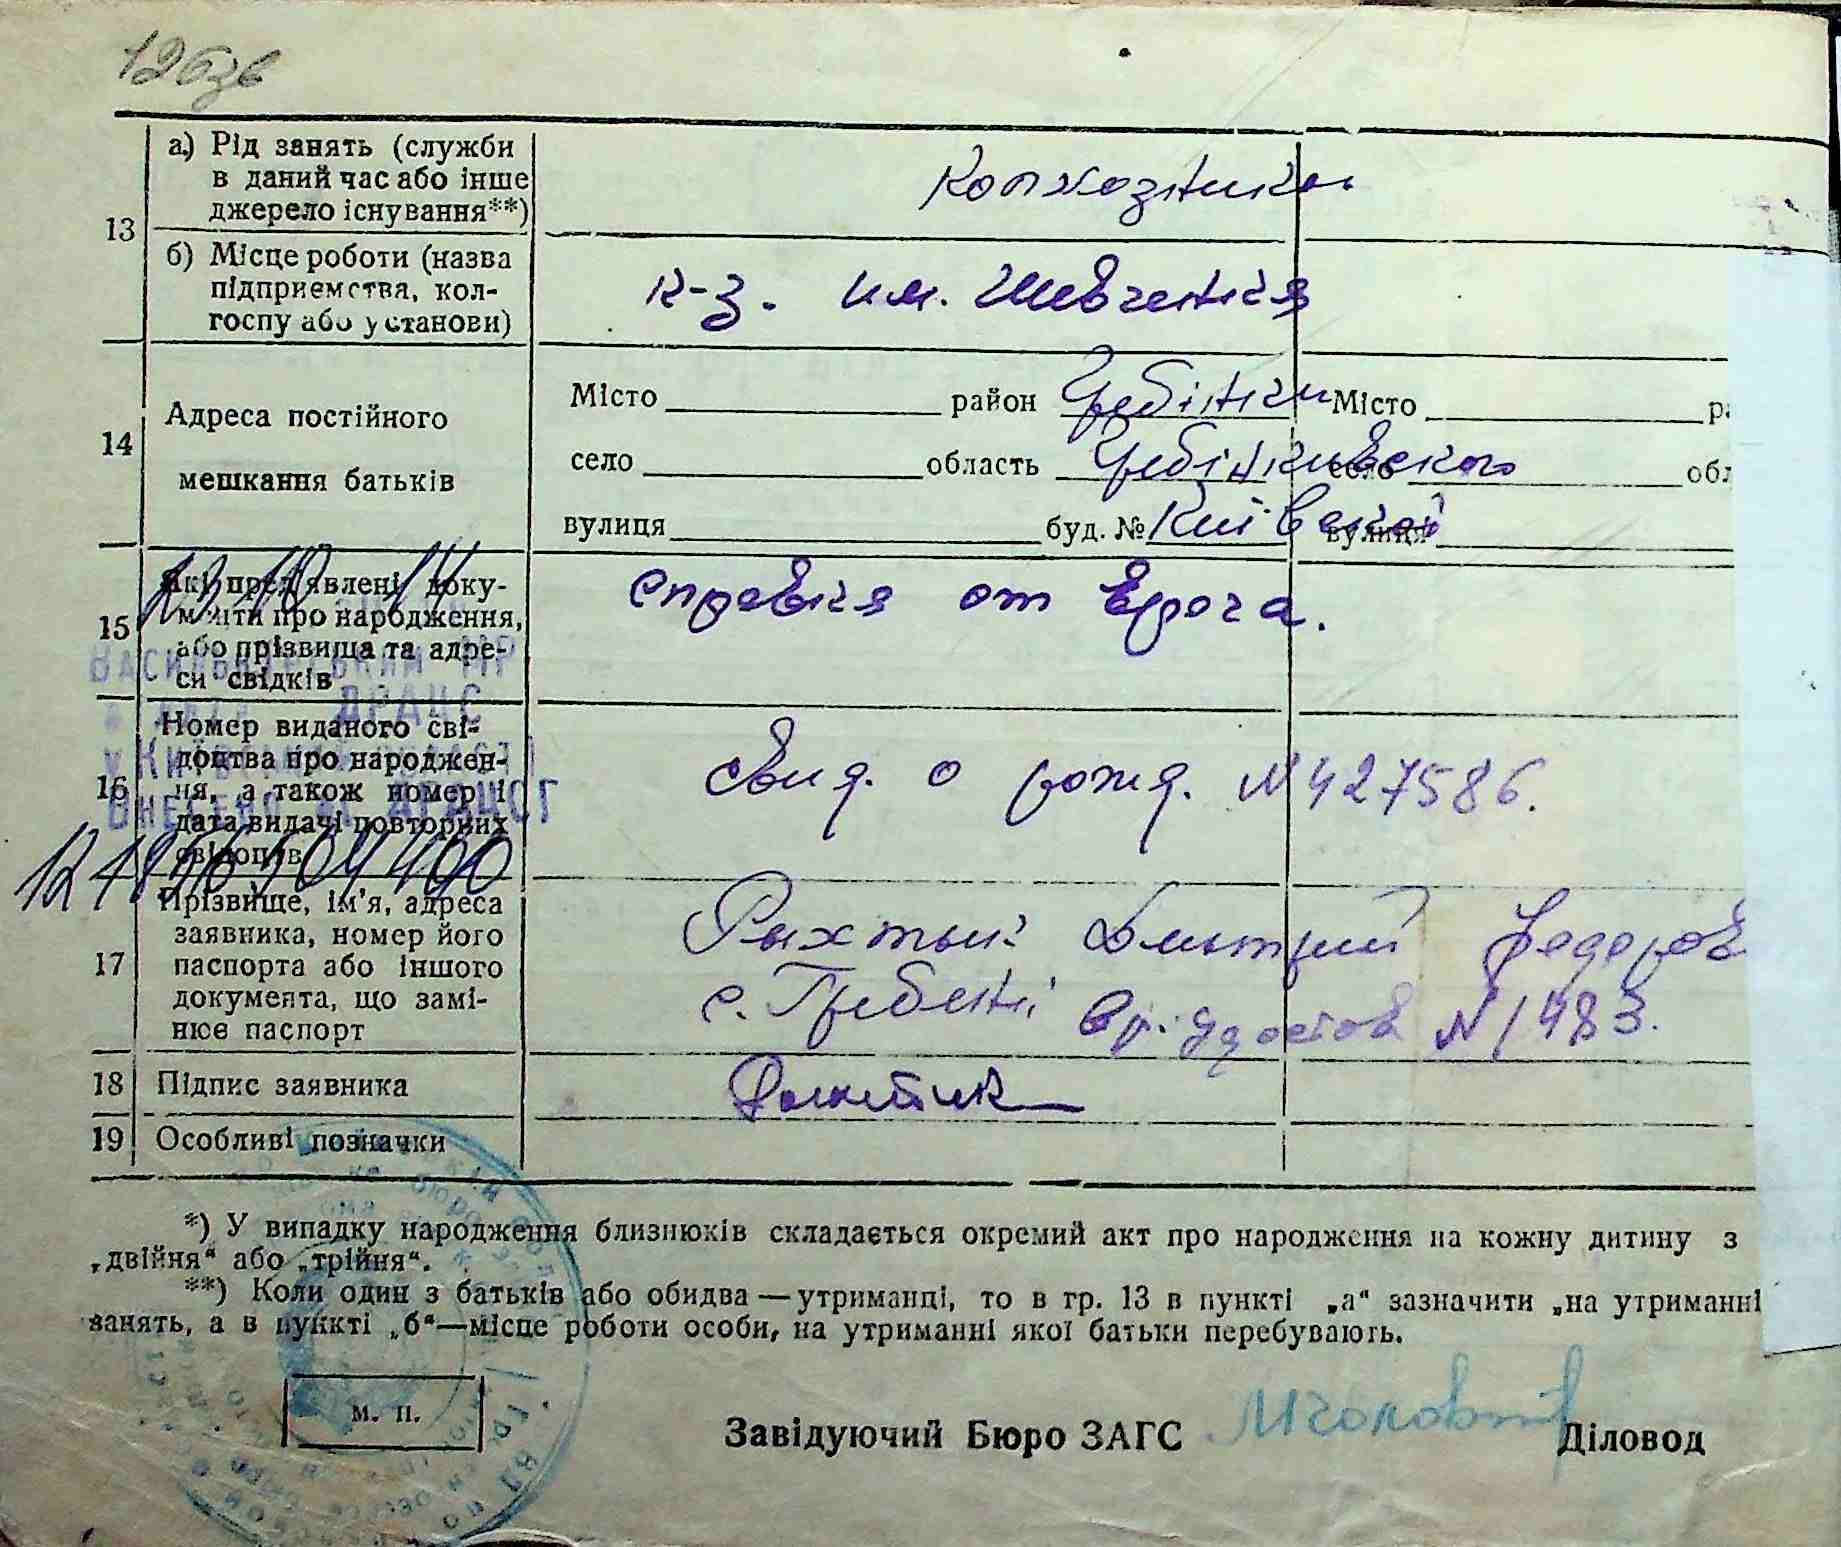 12бзв
13
а) Рід занять (служби
в даний час або інше
джерело існування**)
Колхозники
б) Місце роботи (назва
підприємства, кол-
госпу або установи)
к-з. им. Шевченка
14
Адреса постійного
мешкання батьків
Місто район Гребінки Місто
село область Гребінкивского село обл
вулиця буд. № Київской вулиця
23 10 14
15
Які пред'явлені доку-
менти про народження,
або прізвища та адре-
си свідків
справка от врача.
ДРАЦС
16
Номер виданого сві-
доцтва про народжен-
ня, а також номер і
дата видачі повторних
свідоцтв
Свид. о рожд. N 427586.
ВНЕСЕНО ДО ДРАЦСГ
12 1
17
Прізвище, ім'я, адреса
заявника, номер його
паспорта або іншого
документа, що замі-
нює паспорт
Рыхтык Дмитрий Федоров
с. Гребені вр. удостов N 1483.
18
Підпис заявника
19
Особливі позначки
*) У випадку народження близнюків складається окремий акт про народження на кожну дитину з
„двійня“ або „трійня“.
**) Коли один з батьків або обидва — утриманці, то в гр. 13 в пункті „а“ зазначити „на утриманні
занять, а в пункті „б“—місце роботи особи, на утриманні якої батьки перебувають.
М. П.
Завідуючий Бюро ЗАГС Діловод